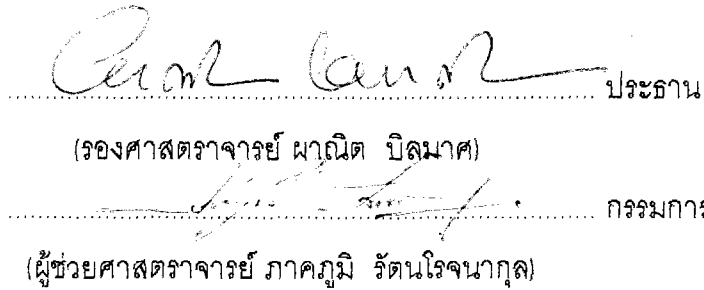 ประธาน
(รองศาสตราจารย์ ผาณิต บิลมาศ)
กรรมการ
(ผู้ช่วยศาสตราจารย์ ภาคภูมิ รัตนโรจนากุล)